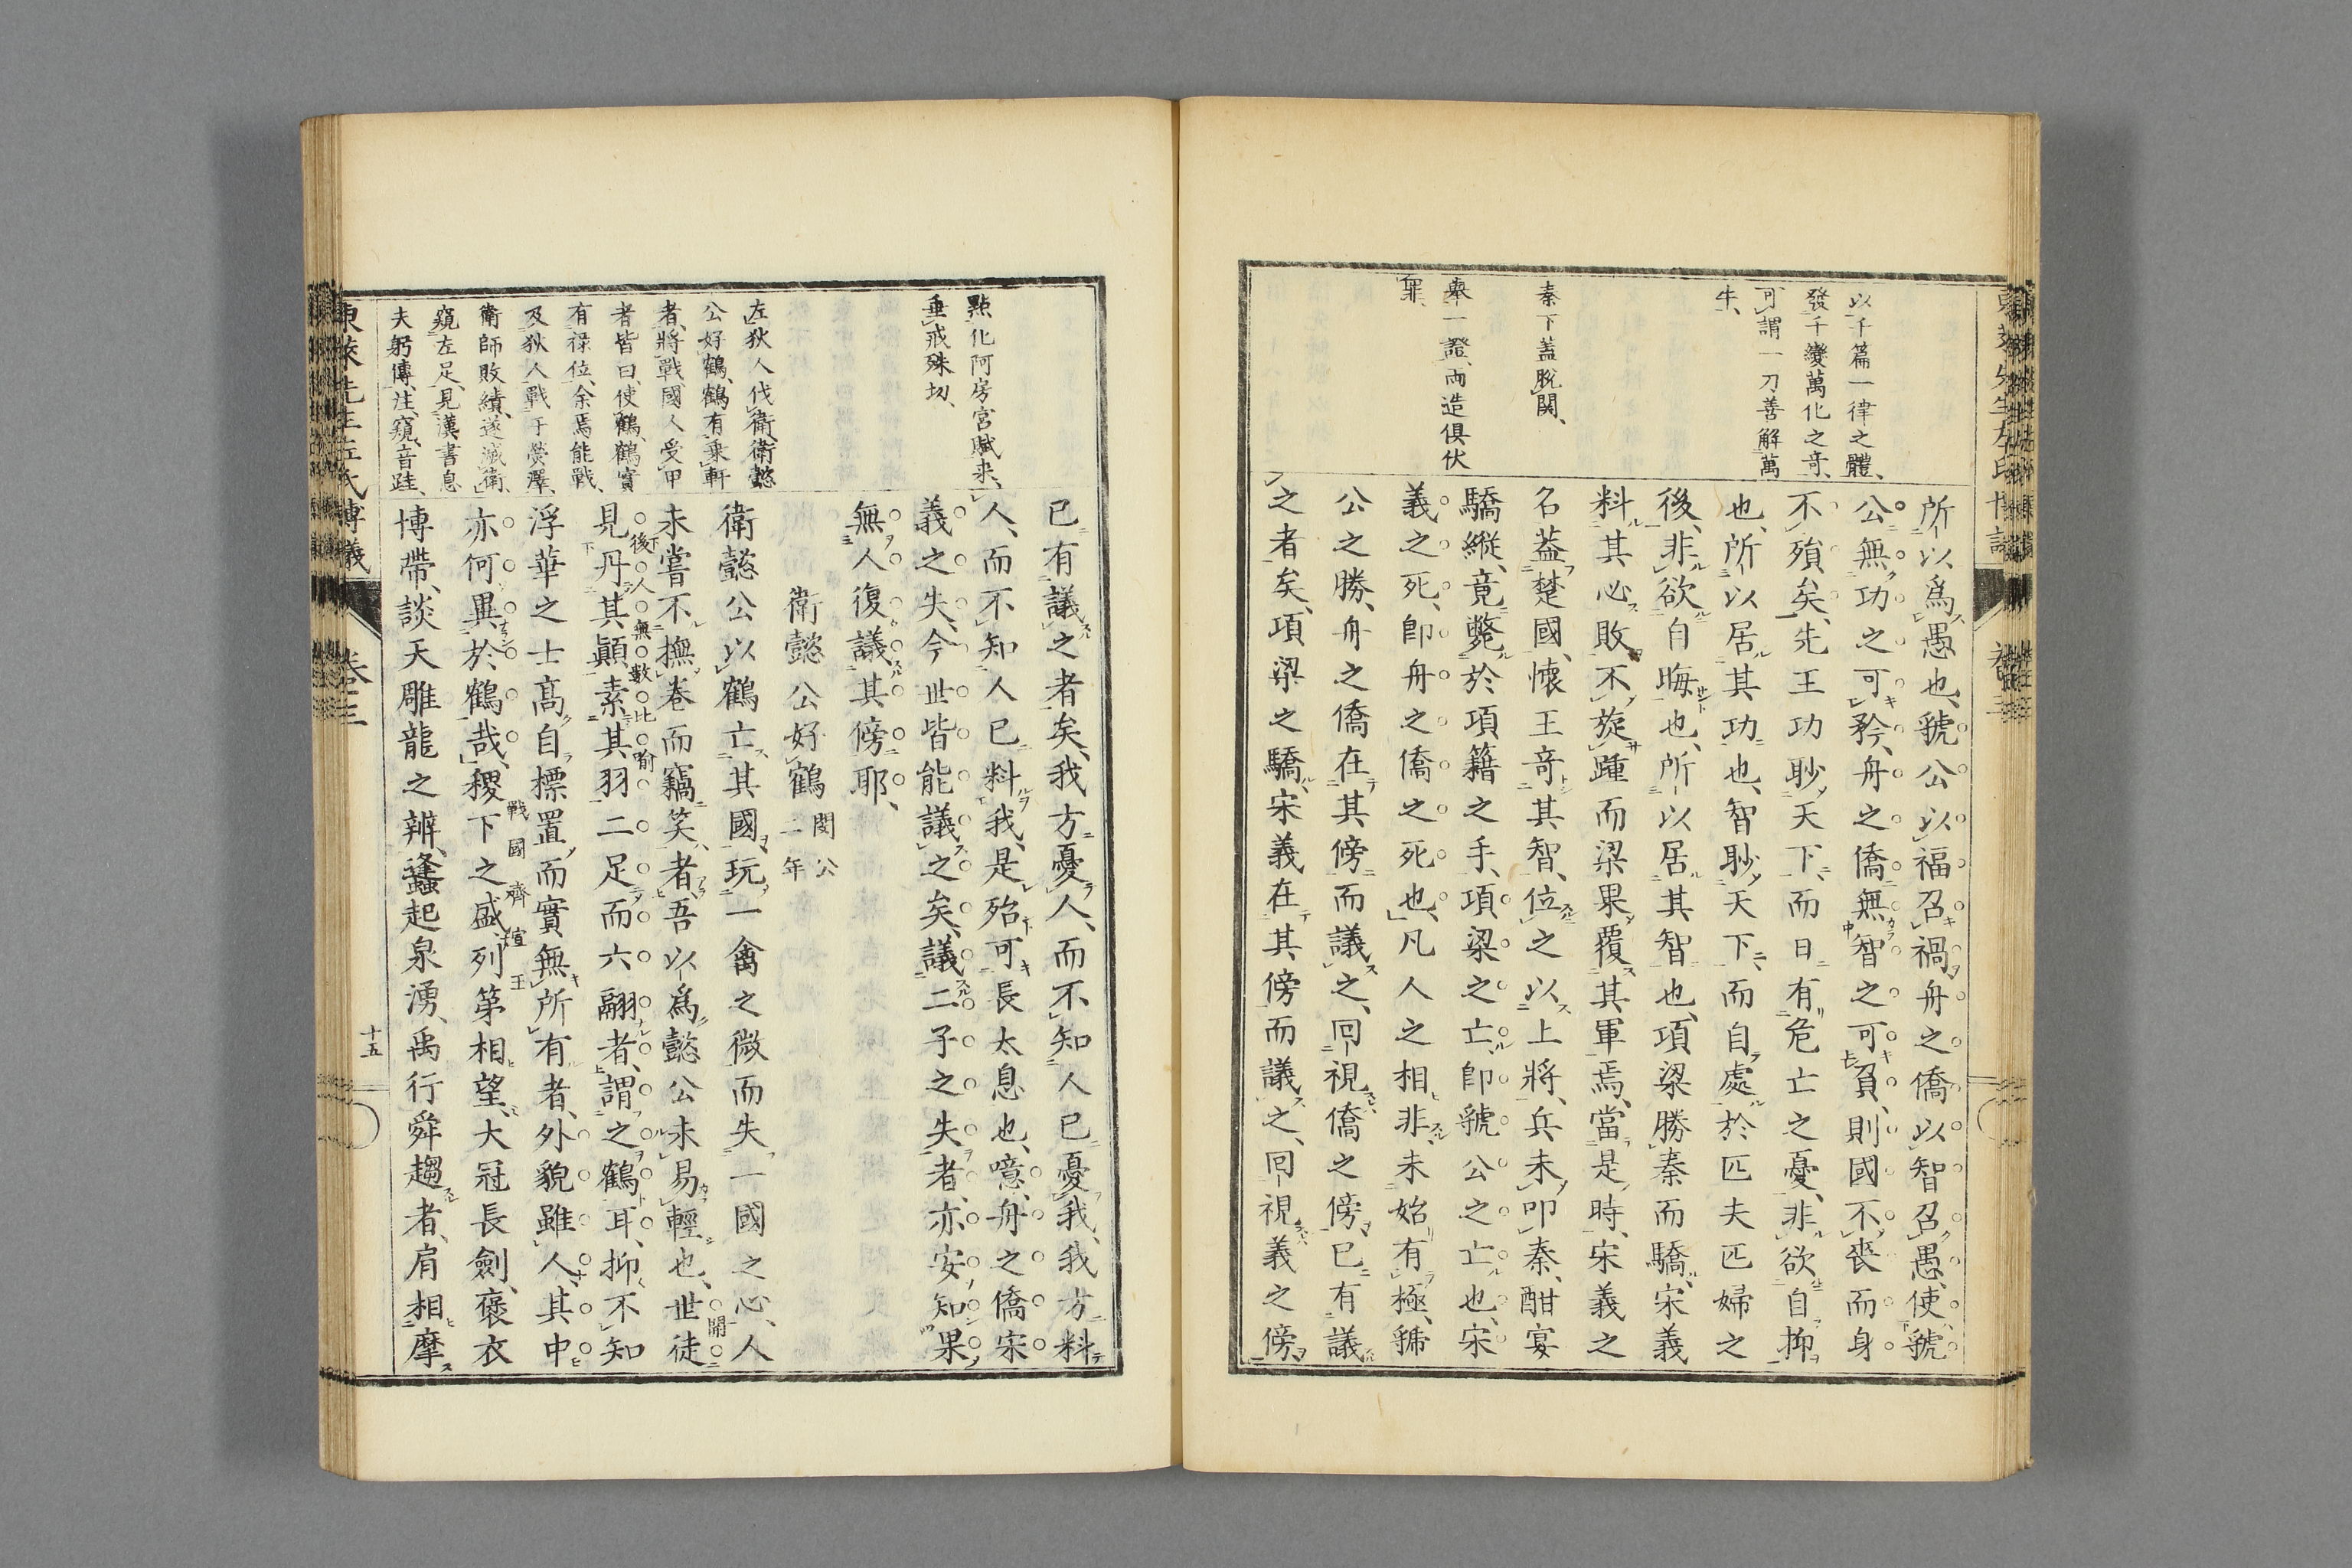 以千篇一律之體、
發千變萬化之奇、
可謂一刀善解萬
牛、
秦下蓋脫關、
舉一證、両造俱伏
罪、
所以爲愚也、虢公以福召禍、舟之僑以智召愚、使虢
公無功之可矜、舟之僑無智之可負、則國不喪而身
不殞矣、先王功眇天下、而日有危亡之憂、非欲自抑
也、所以居其功也、智眇天下、而自處於匹夫匹婦之
後、非欲自晦也、所以居其智也、項梁勝秦而驕、宋義
料其必敗、不旋踵而梁果覆其軍焉、當是時、宋義之
名蓋楚國、懷王竒其智、位之以上將、兵未叩秦、酣宴
驕縱、竟斃於項籍之手、項梁之亡、卽虢公之亡也、宋
義之死、卽舟之僑之死也、凡人之相非、未始有極、虢
公之勝、舟之僑在其傍而議之、回視僑之傍、已有議
之者矣、項梁之驕、宋義在其傍而議之、回視義之傍、
點化阿房宮賦来、
垂戒殊切、
左狄人伐衛、衛懿
公好鶴、鶴有乗軒
者、將戰、國人受甲
者皆曰、使鶴、鶴實
有祿位、余焉能戰、
及狄人戰于熒澤、
衛師敗績、遂滅衛、
窺左足、見漢書息
夫躬傳、注、窺、音跬、
已有議之者矣、我方憂人、而不知人已憂我、我方料
人、而不知人已料我、是殆可長太息也、噫、舟之僑宋
義之失、今世皆能議之矣、議二子之失者、亦安知果
無人復議其傍耶、
衛懿公好鶴 閔公二年
衛懿公以鶴亡其國、玩一禽之微而失一國之心、人
未嘗不撫卷而竊笑者、吾以爲懿公未易輕也、世徒
見丹其顚、素其羽、二足而六翮者、謂之鶴耳、抑不知
浮華之士、高自標置、而實無所有者、外貌雖人、其中
亦何異於鶴哉、稷下之盛、列第相望、大冠長劍、褒衣
博帶、談天雕龍之辨、蠭起泉湧、禹行舜趨者、肩相摩
開
後人無數比喻
戰國齊宣王
東萊先生左氏博議
卷三
十五